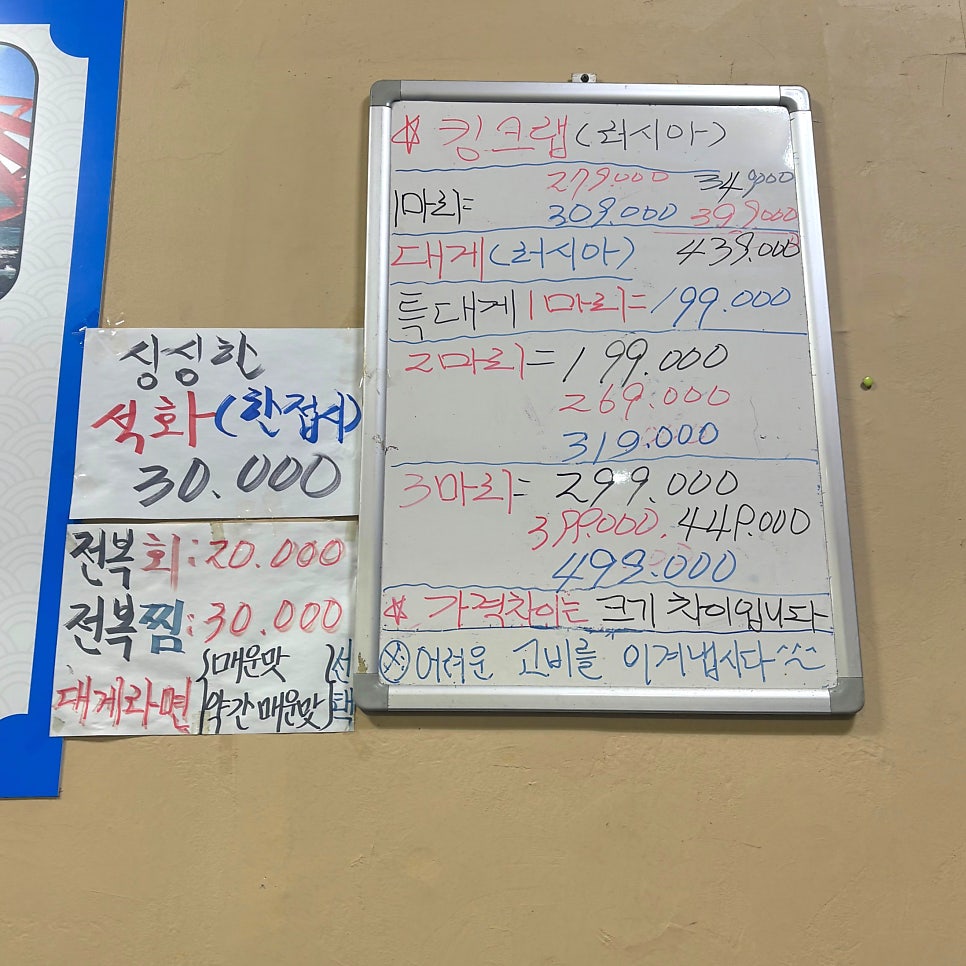 싱싱한
석화(한접시)
30.000
전복회:20.000
전복찜:30.000
대게라면 {매운맛 약간매운맛} 선택
☆ 킹크랩(러시아)
279.000 349.000
1마리= 309.000 399.000
대게(러시아) 439.000
특대게 1마리=199.000
2마리=199.000
269.000
319.000
3마리= 299.000
399.000. 449.000
499.000
☆ 가격차이는 크기 차이입니다
※어려운 고비를 이겨냅시다^^